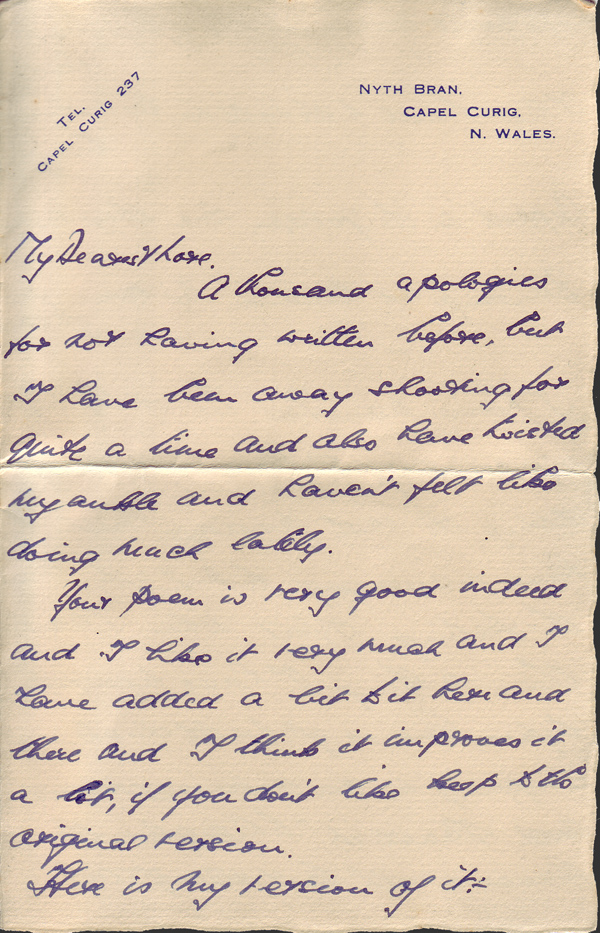 TEL.
CAPEL CURIG 237
NYTH BRAN.
CAPEL CURIG,
N. WALES.
My Dearest
A thousand apologies
for not having written before, but
I have been away shooting for
quite a time and also have twisted
my ankle and haven't felt like
doing much lately.
Your poem is very good indeed
and I like it very much and I
have added a bit to it here and
there and I think it improves it
a bit, if you don't like keep to the
original version.
Here is my version of it:-